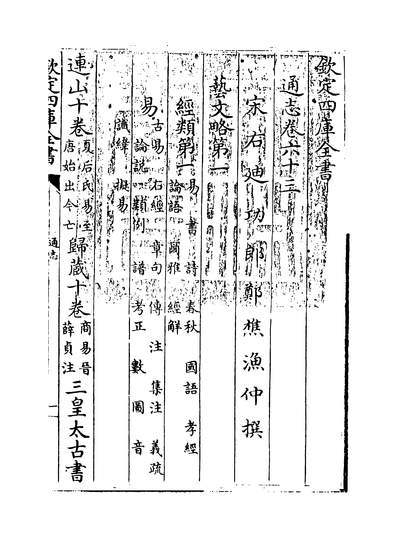 欽定四庫全書
通志卷六十三
宋右迪功郎鄭樵漁仲撰
藝文略第一
經類第一
易 書 詩 春秋 國語 孝經
論語 爾雅 經解
易
古易 石經 章句 傳 注 集注 義疏
論說 類例 譜 考正 數 圖 音
讖緯 擬易
連山十卷
夏后氏易至
唐始出今亡
歸藏十卷
商易晉
薛貞注
三皇太古書
欽定四庫全書
通志
一